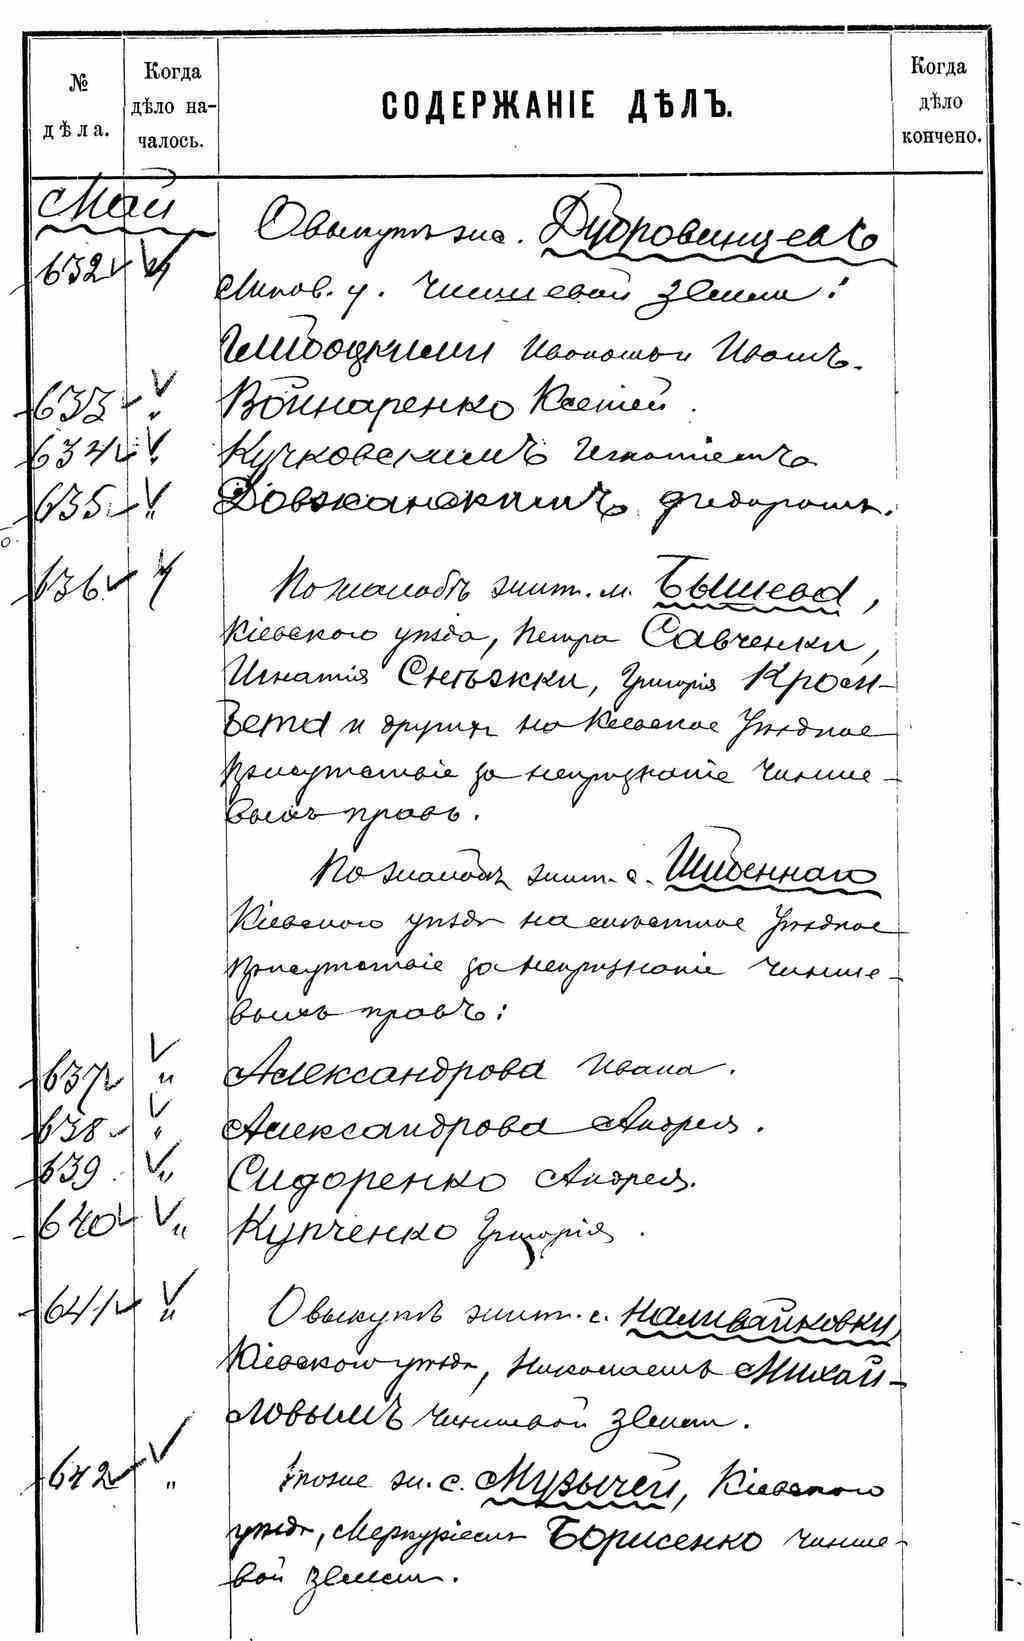 № дѣла.
Когда дѣло началось.
СОДЕРЖАНІЕ ДѢЛЪ.
Когда дѣло кончено.
Май
О выкупѣ жи. Дубровинцевъ
632 Липов. у. чиншевой земли:
Ивановымъ.
633 " Войнаренко Ксеніей.
634 " Кучковскимъ Игнатіемъ
635 " Довжанскимъ Федоромъ.
636 4 По жалобѣ жит. м. Бышева,
Кіевскаго уѣзда, Петра Савченки,
Игнатія Снѣжки, Григорія
и другихъ на Кіевское Уѣздное
Присутствіе за непризнаніе чинше-
выхъ правъ.
По жалобѣ жит. с. Шибеннаго
Кіевскаго уѣзда на мѣстное Уѣздное
Присутствіе за непризнаніе чинше-
выхъ правъ:
637 " Александрова Ивана.
638 " Александрова Андрея.
639 " Сидоренко Андрея.
640 " Купченко Григорія.
641 " О выкупѣ жит. с. Наливайковки,
Кіевскаго уѣзда, Николаемъ Михай-
ловымъ чиншевой земли.
642 " Тоже ж. с. Музычей, Кіевскаго
уѣзда, Меркуріемъ Борисенко чинше-
вой земли.